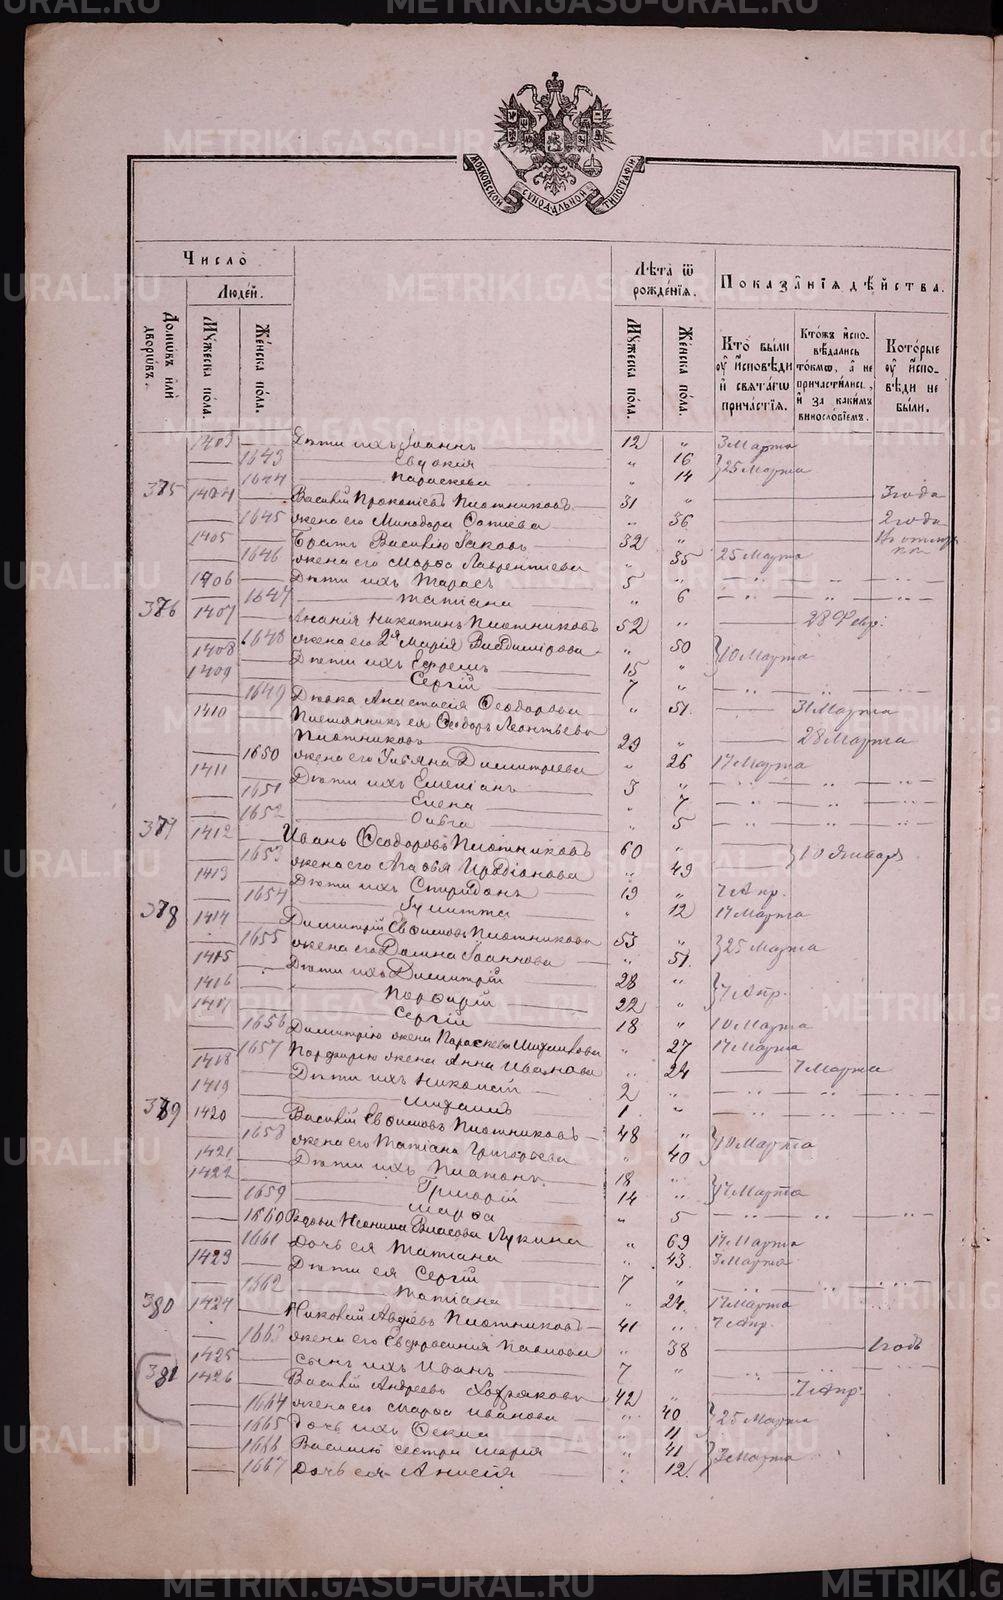 МОСКОВСКОЙ СѴНОДАЛЬНОЙ ТИПОГРАФІИ
Число̀
Людей.
Домѡвъ или дворѡвъ.
Мꙋжеска пола.
Женска пола.
Лѣта ѿ рожденїѧ.
Мꙋжеска пола.
Женска пола.
Показанїѧ дѣйства.
Кто были ᲂу исповѣди и свѧтагѡ причастїѧ.
Ктожъ исповѣдались токмѡ, а не причастились, и за какимъ винословїемъ.
Которые ᲂу исповѣди не были.
1403 Дѣти ихъ Іоаннъ 12 „ 3 Марта
1643 Евдокия „ 16 25 Марта
1644 Параскева „ 14
375 1404 Василій Прокопіевъ Плотниковъ 31 „ 3 года
1645 жена его Минодора „ 36 2 года
1405 Братъ Василію Іаковъ 32 „
1646 жена его Марѳа Лаврентіева „ 35 25 Марта
1406 Дѣти ихъ Тарасъ 5 „
1647 Татіана „ 6
376 1407 Ананія Никитинъ Плотниковъ 52 „ 28 Февр:
1648 жена его 2я Марія Владимірова „ 50 10 Марта
1408 Дѣти ихъ Ефремъ 15 „
1409 Сергій 7 „
1649 Дѣвка Анастасія Ѳеодорова „ 51 31 Марта
1410 Племянникъ ея Ѳеодоръ Леонтьевъ
Плотниковъ 29 „ 28 Марта
1650 жена его Ульяна Димитріева „ 26 17 Марта
1411 Дѣти ихъ Емеліанъ 3 „
1651 Елена „ 7
1652 Ольга „ 5
377 1412 Иванъ Ѳеодоровъ Плотниковъ 60 „ 10 Января
1653 жена его Агафья Иродіонова „ 49
1413 Дѣти ихъ Спиридонъ 19 „ 7 Апр.
1654 Іулитта „ 12 17 Марта
378 1414 Димитрій Евфимовъ Плотниковъ 53 „ 25 Марта
1655 жена его Домна Іоаннова „ 51
1415 Дѣти ихъ Димитрій 28 „ 7 Апр.
1416 Порфирій 22 „
1417 Сергій 18 „ 10 Марта
1656 Димитрію жена Параскева Михайлова „ 27 17 Марта
1657 Порфирію жена Анна Иванова „ 24 7 Марта
1418 Дѣти ихъ Николай 2 „
1419 Михаилъ 1 „
379 1420 Василій Евфимовъ Плотниковъ 48 „ 10 Марта
1658 жена его Татіана Григорьева „ 40
1421 Дѣти ихъ Платонъ 18 „ 17 Марта
1422 Григорій 14 „
1659 Марѳа „ 5
1660 Вдова Неонила Власова Лукина „ 69 17 Марта
1661 Дочь ея Татіана „ 43 3 Марта
1423 Дѣти ея Сергій 7 „
1662 Татіана „ 24 17 Марта
380 1424 Николай Авдіевъ Плотниковъ 41 „ 7 Апр.
1663 жена его Евфросинія Павлова „ 38 1 годъ
1425 сынъ ихъ Иванъ 7 „
381 1426 Василій Андреевъ Хохряковъ 42 „ 7 Апр.
1664 жена его Марѳа Иванова „ 40 25 Марта
1665 Дочь ихъ Ѳекла „ 11
1666 Василію сестра Марія „ 41 3 Марта
1667 Дочь ея Анисія „ 12
METRIKI.GASO-URAL.RU